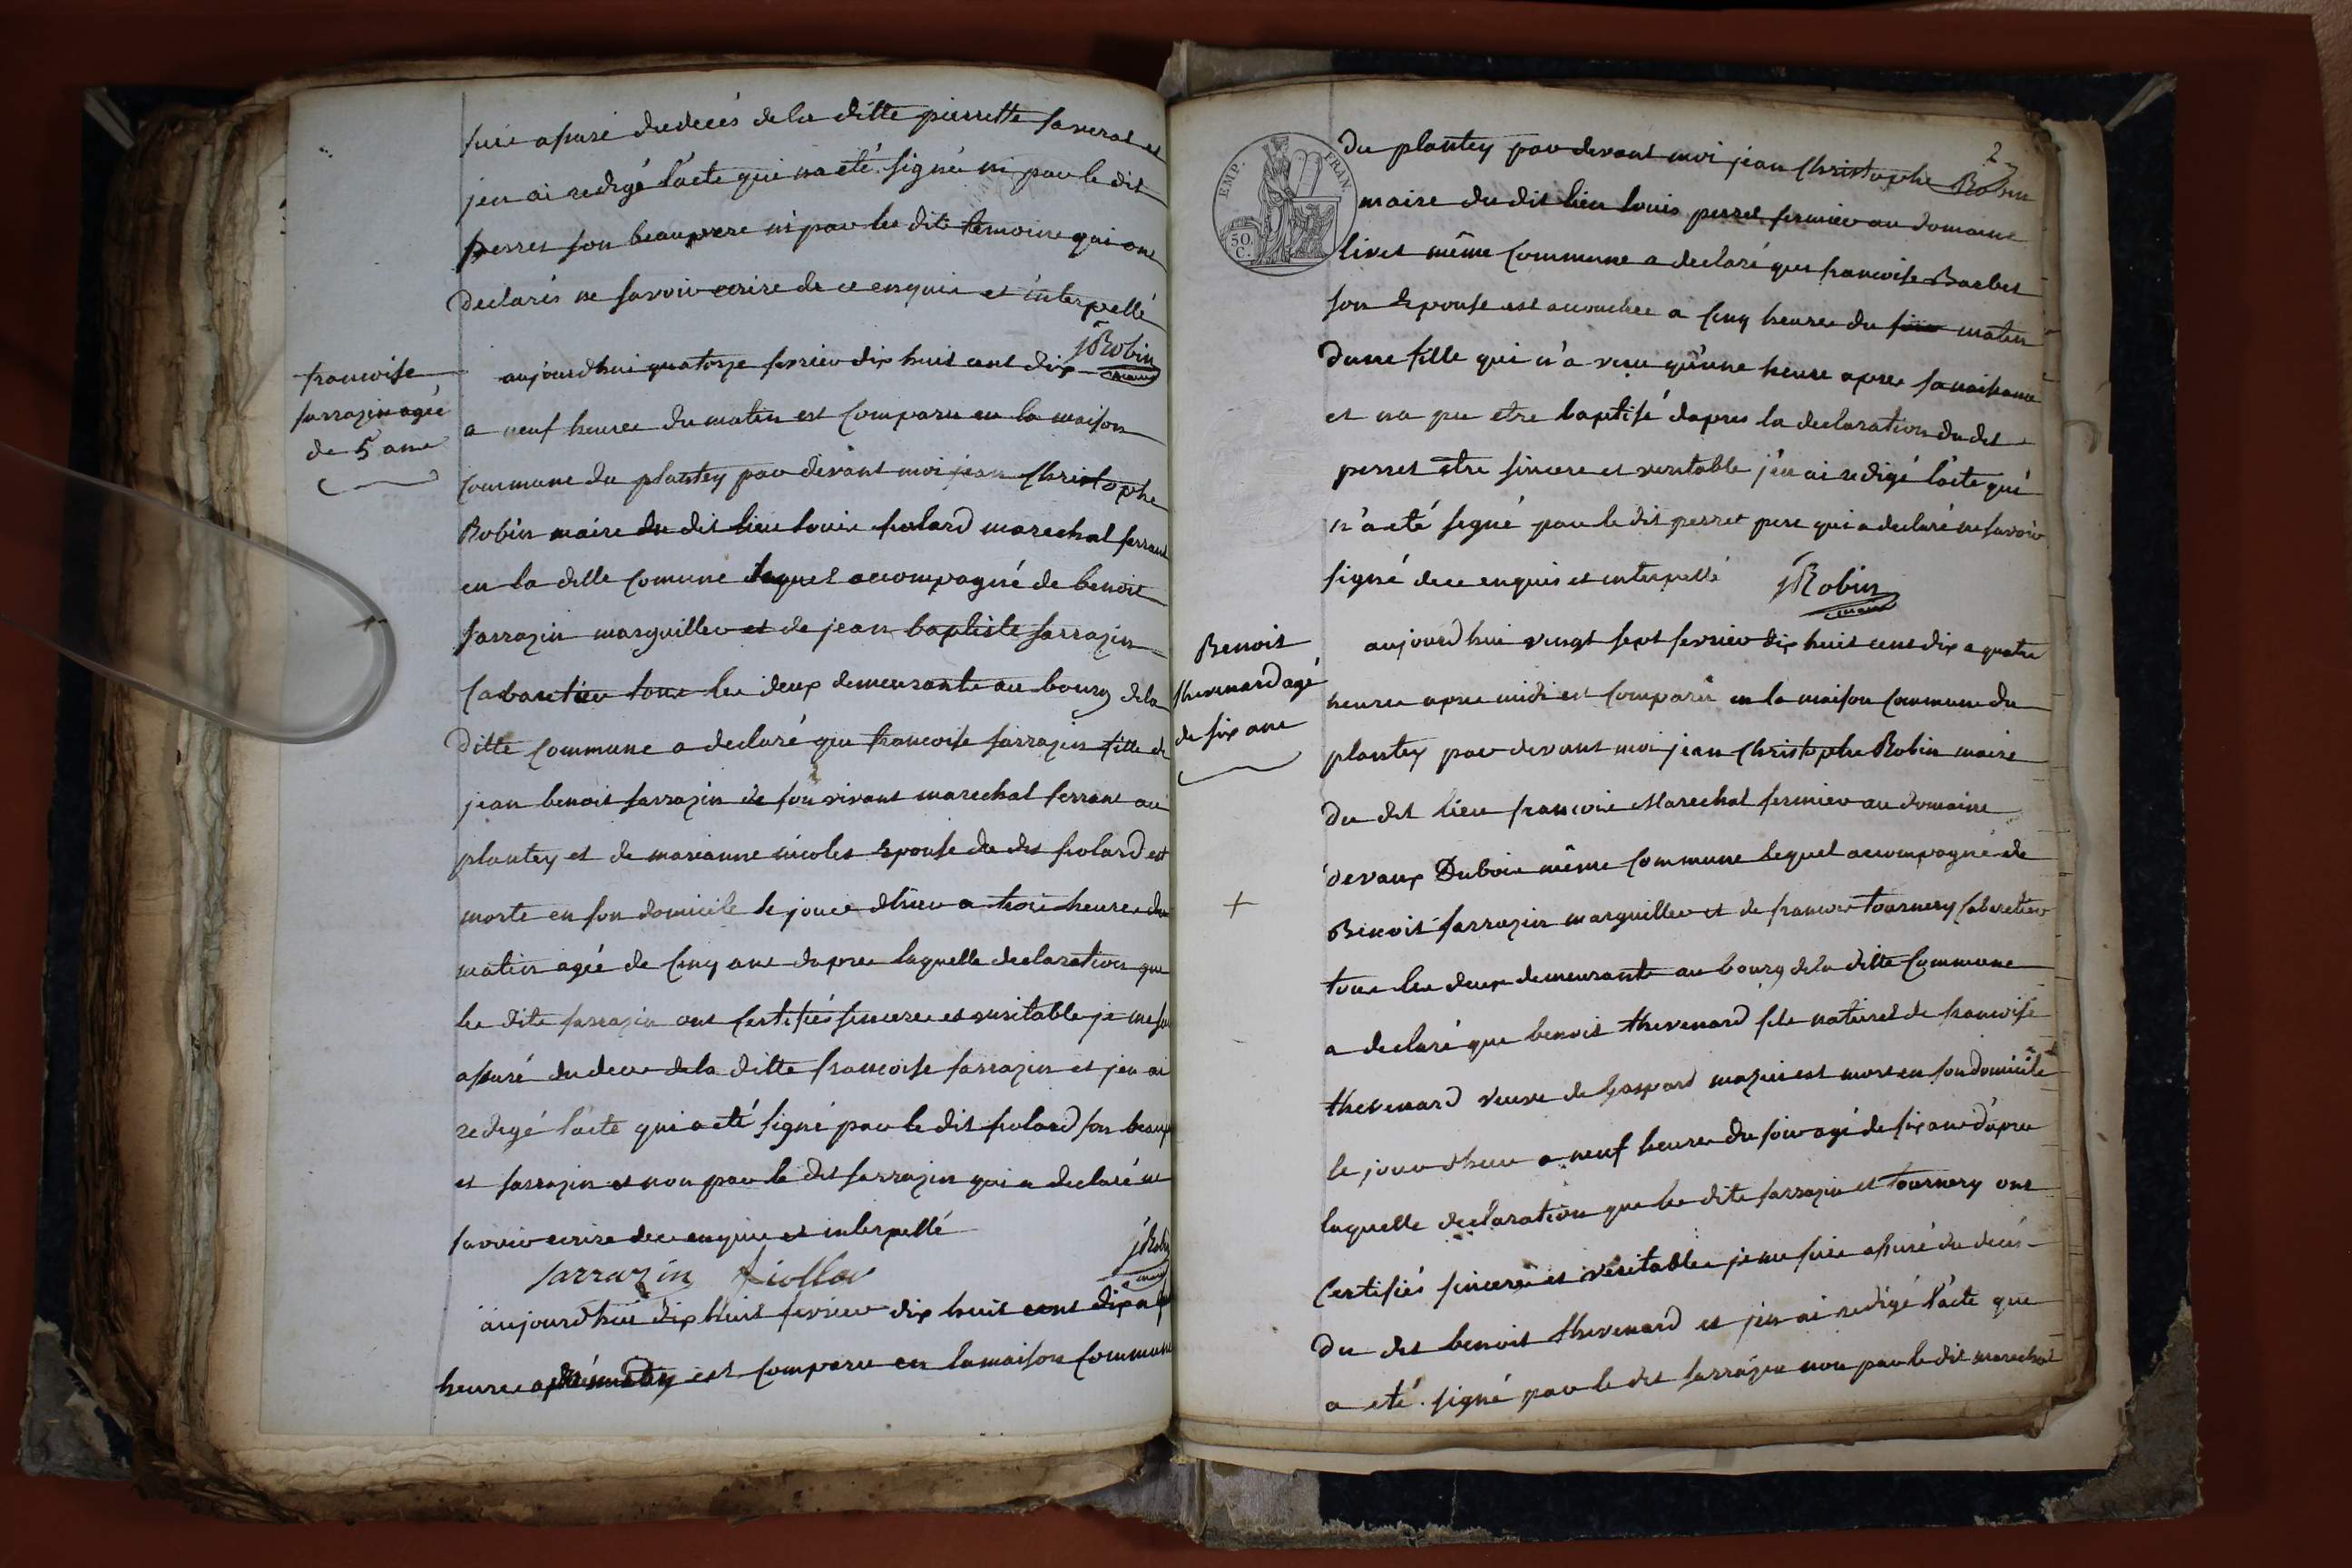 suis assuré du decés de la ditte pierrette saverat et
jen ai redigé l'acte qui na eté signé ni par le dit
perret son beaupere ni par les dits temoins qui ont
declarés ne savoir ecrire de ce enquis et interpellé
JRobin
maire
francoise
sarrazin agée
de 5 ans
aujourdhui quatorze fevrier dix huit cent dix
a neuf heures du matin est comparu en la maison
commune du plantey par devant moi jean Christophe
Robin maire du dit lieu louis folard marechal ferrant
en la ditte comune lequel accompagné de benoit
sarrazin marguiller et de jean baptiste sarrazin
Cabaretier tous les deux demeurants au bourg de la
ditte commune a declaré que francoise sarrazin fille de
jean benoit sarrazin de son vivant marechal ferrant au
plantey et de marianne nicolet Epouse du dit folard est
morte en son domicile le jour d'hier a trois heures du
matin agée de cinq ans dapres laquelle declaration que
les dits sarrazin ont certifiés sincere et veritable je me suis
assuré du deces de la ditte francoise sarrazin et jen ai
redigé l'acte qui a eté signé par le dit folard son beaup
et sarrazin et non par le dit sarrazin qui a declaré ne
savoir ecrire de ce enquis et interpellé
sarrazin fiollar
JRobin
maire
aujourdhui dix huit fevrier dix huit cent dix a
heures est comparu en la maison commune
2
EMP. FRAN.
50. C.
du plantey par devant moi jean Christophe Robin
maire du dit lieu louis perret fermier au domaine
livet même commune a declaré que francoise Barbet
son Epouse est accouchée a cinq heures du soir matin
dune fille qui n'a vecu qu'une heure apres sa naissance
et na pu etre baptisé dapres la declaration du dit
perret etre sincere et veritable j'en ai redigé l'acte qui
n'a eté signé par le dit perret pere qui a declaré ne savoir
signé de ce enquis et interpellé
JRobin
maire
Benoit
thevenard agé
de six ans
+
aujourdhui vingt sept fevrier dix huit cent dix a quatre
heures apres midi est comparu en la maison commune du
plantey par devant moi jean Christophe Robin maire
du dit lieu francois Marechal fermier au domaine
devaux Dubois même commune lequel accompagné de
Benoit sarrazin marguiller et de francois tournery Cabaretier
tous les deux demeurants au bourg de la ditte Commune
a declaré que benoit thevenard fils naturel de francoise
thevenard veuve de gaspard mazuir est mort en son domicile
le jour d'hier a neuf heures du soir agé de six ans d'apres
laquelle declaration que les dits sarrazin et tournery ont
certifiés sincere et veritable je me suis assuré du decés
du dit benoit thevenard et jen ai redigé l'acte que
a eté signé par le dit sarrazin non par le dit marechal